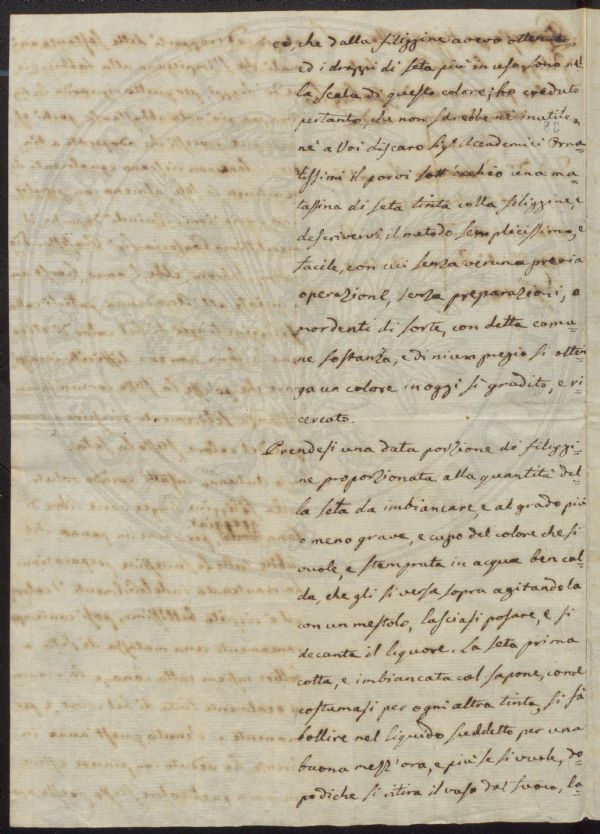 ço, che dalla filiggine avevo ottenuto,
ed i drappi di seta più in uso sono nel=
la scala di questo colore; ho creduto
pertanto, che non sarebbe nè inutile,
nè a Voi discaro Sigri Accademici Orna=
tissimi il porvi sott'occhio una ma=
tassina di seta tinta colla filiggine, e
descrivervi il metodo semplicissimo, e
facile, con cui senza veruna previa
operazione, senza preparazioni, o
mordenti di sorte, con detta comu=
ne sostanza, e di niun pregio si otten=
ga un colore in oggi sì gradito, e ri=
cercato.
Prendesi una data porzione di filiggi=
ne proporzionata alla quantità del=
la seta da imbiancare, e al grado più
o meno grave, e cupo del colore che si
vuole, e stemprata in acqua ben cal=
da, che gli si versa sopra agitandola
con un mestolo, lasciasi posare, e si
decanta il liquore. La seta prima
cotta, e imbiancata col sapone, come
costumasi per ogni altra tinta, si fà
bollire nel liquido suddetto per una
buona mezz'ora, e più se si vuole, do=
podiche si ritira il vaso dal fuoco, la=
38